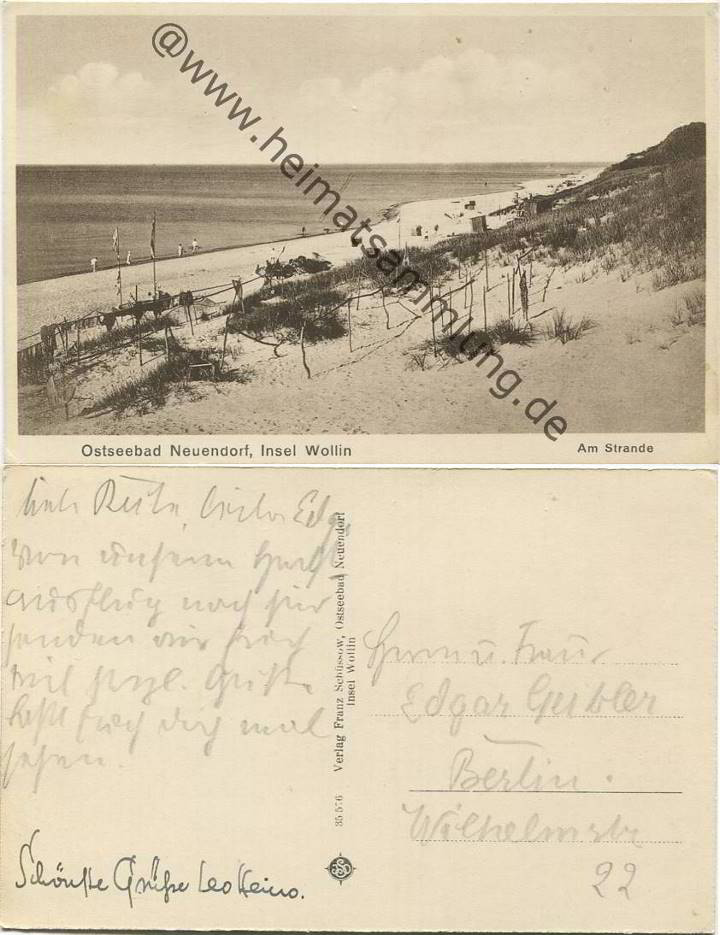 @www.heimatsammlung.de
Ostseebad Neuendorf, Insel Wollin
Am Strande
Liebe Lieber
von unserem
ausflug nach hier
senden wir Euch
viel herzl. Grüße
laßt Euch doch mal
sehen.
Schönste Grüße Leo Heino.
35 576 Verlag Franz Schüssow, Ostseebad Neuendorf
Insel Wollin
Herrn u. Frau
Edgar
Berlin.
Wilhelmstr
22